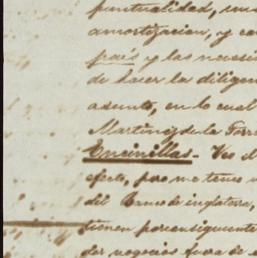 puntualidad, en
amortizacion, y co
pais y las necesi
de hacer la diligen
asunto, en lo cual
Martinez de la Torre
Encinillas - Veo d
efecto, pero me temo
del Banco de inglaterra,
tienen por consiguiente
der negocios fuera de